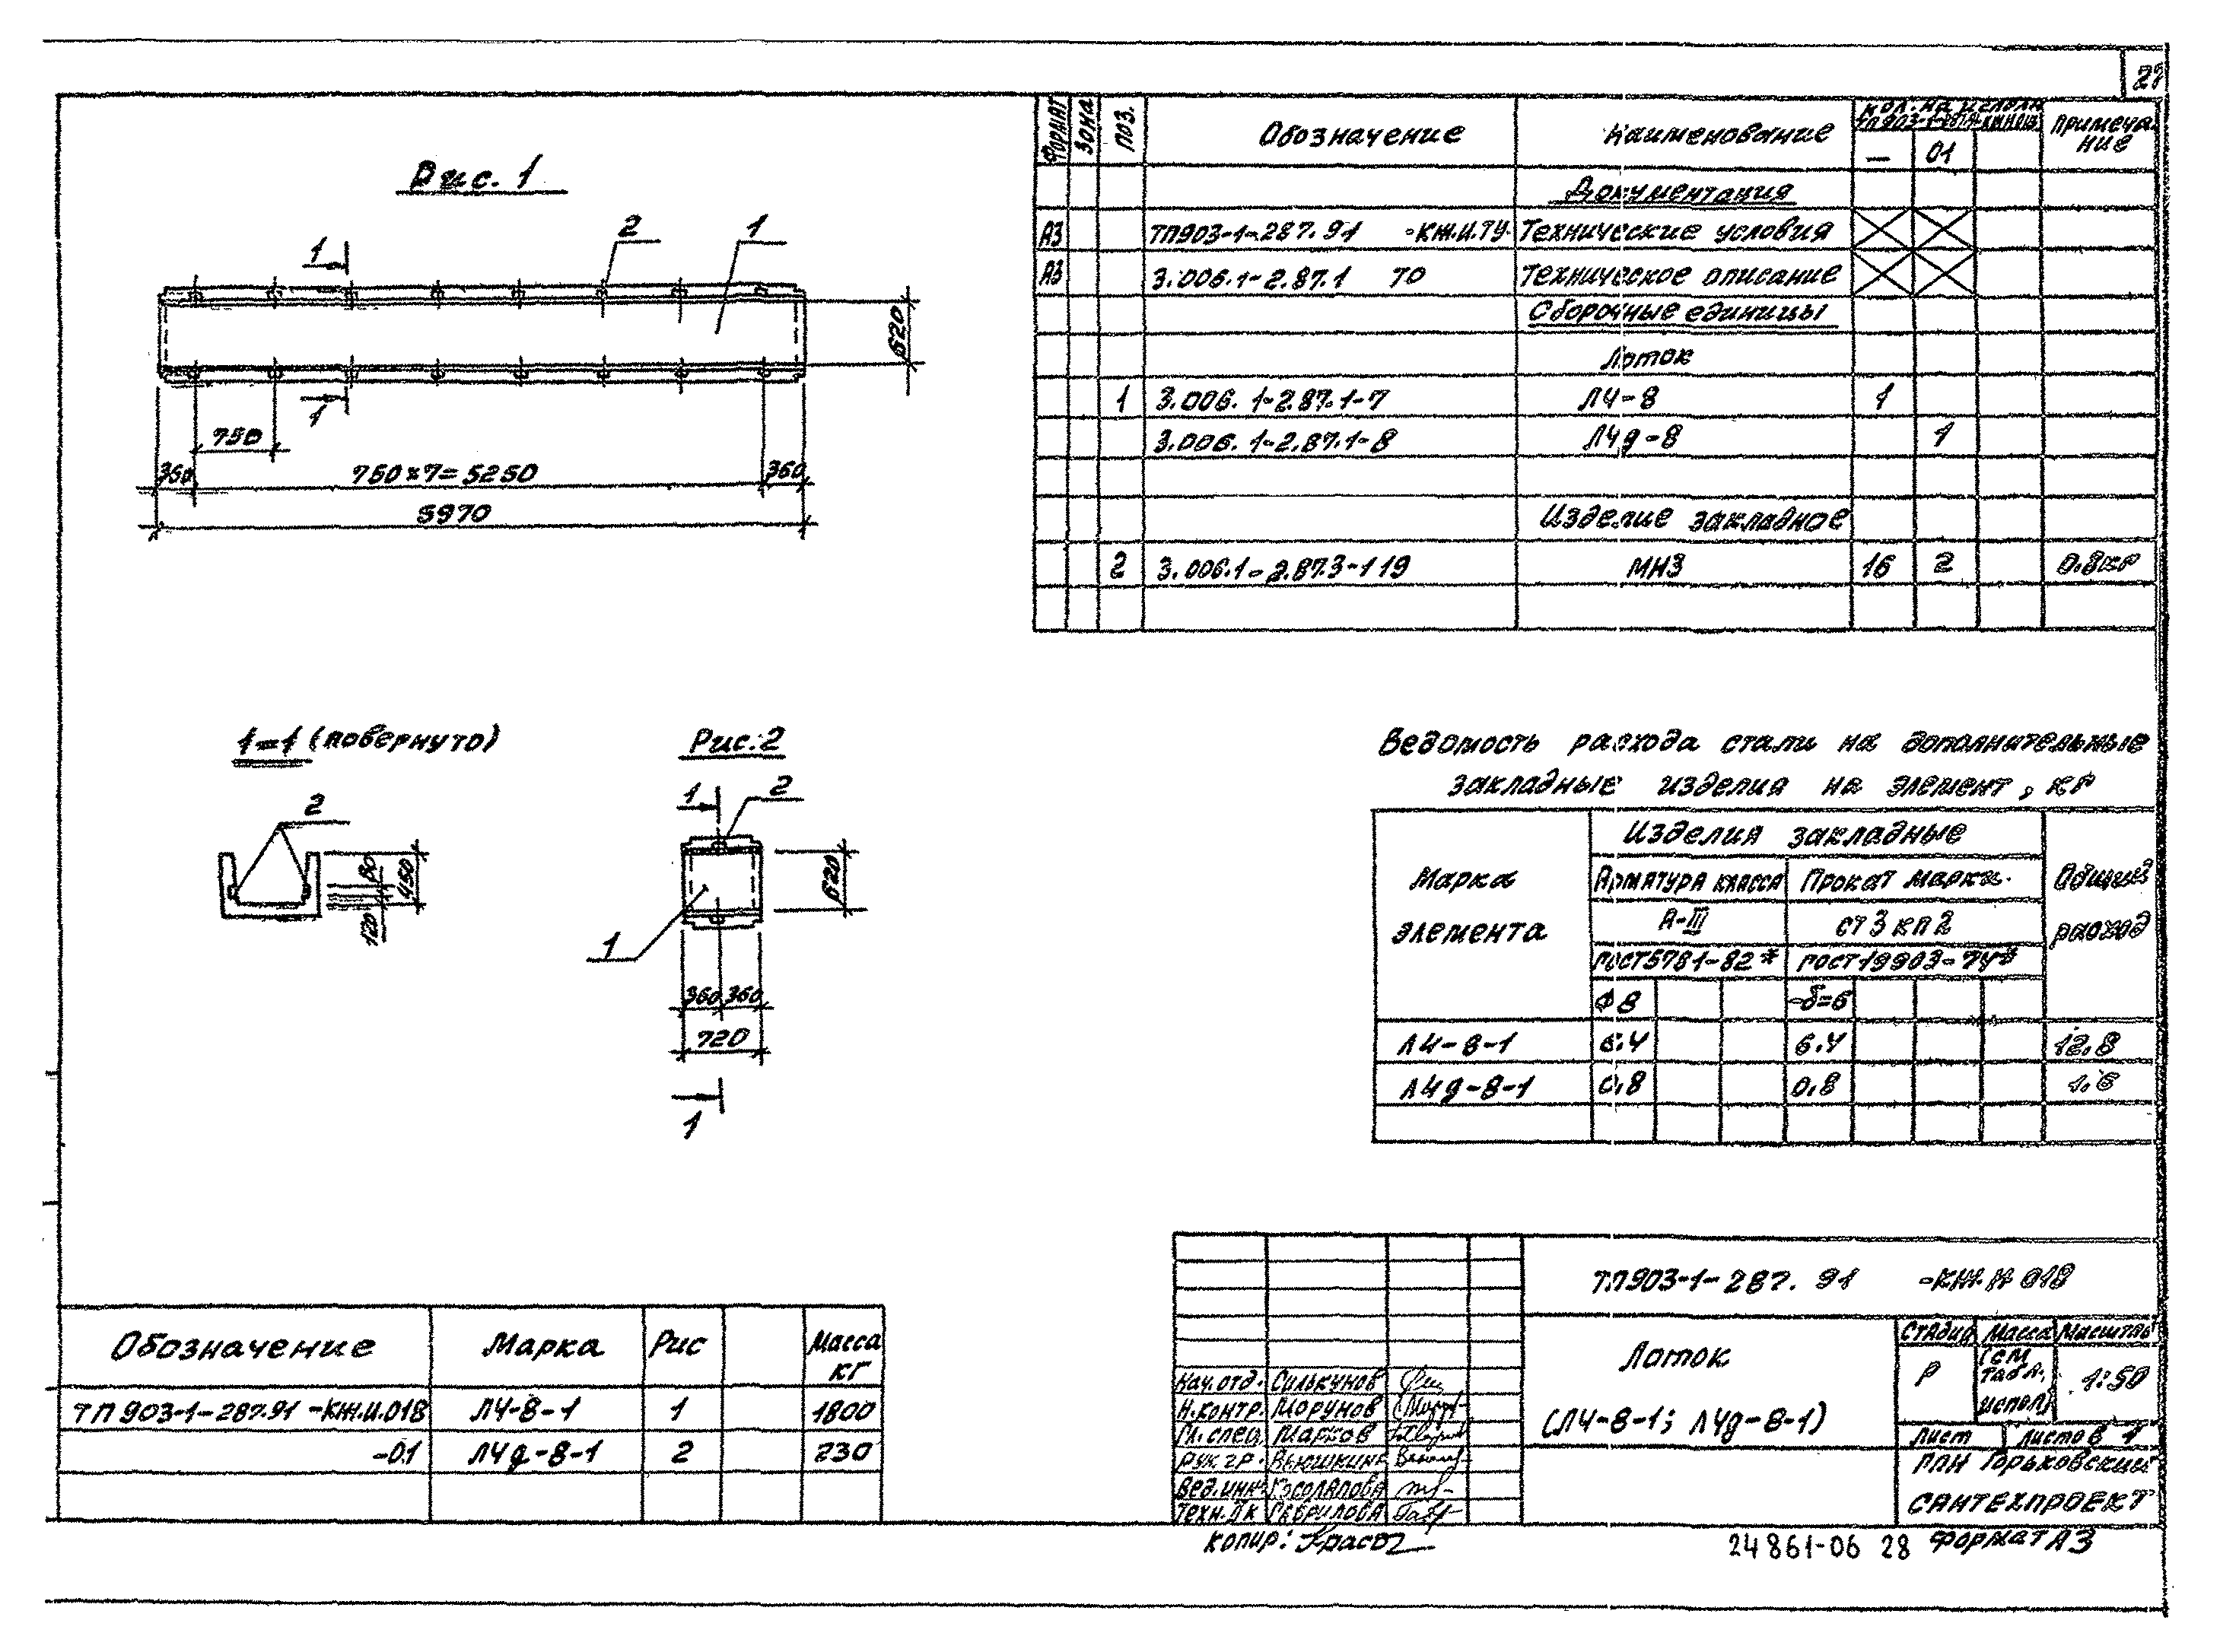 27
Рис. 1
1
2
1
1
620
750
360
750×7=5250
360
5970
Формат Зона Поз. Обозначение Наименование Кол. на исполн Примеча-
ние
— 01
Документация
А3 ТП903-1-287.91 -КЖ.И.ТУ. Технические условия
А3 3.006.1-2.87.1 ТО Техническое описание
Сборочные единицы
Лоток
1 3.006.1-2.87.1-7 Л4-8 1
3.006.1-2.87.1-8 Л4д-8 1
Изделие закладное
2 3.006.1-2.87.3-119 МН3 16 2 0.8кг
1-1 (повернуто)
2
80
450
120
Рис. 2
1
2
620
1
360 360
720
1
Ведомость расхода стали на дополнительные
закладные изделия на элемент, кг
Марка
элемента
Изделия закладные
Арматура класса Прокат марки
А-III ст3кп2
ГОСТ5781-82* ГОСТ19903-74*
Ф8 -δ=6
Общий
расход
Л4-8-1 6.4 6.4 12.8
Л4д-8-1 0,8 0,8 1.6
Обозначение Марка Рис Масса
кг
ТП903-1-287.91 -КЖ.И.018 Л4-8-1 1 1800
-01 Л4д-8-1 2 230
ТП903-1-287.91 -КЖ.И 018
Лоток
(Л4-8-1; Л4д-8-1)
Стадия Масса Масштаб
Р (см. табл. испол) 1:50
Лист Листов 1
ГПИ Горьковский
САНТЕХПРОЕКТ
Нач. отд. Силькунов
Н.контр. Морунов
Гл. спец. Марков
Рук. гр. Вьюшкина
Вед. инж. Косолапова
Техн. IIк Гаврилова
Копир:
24861-06 28 Формат А3